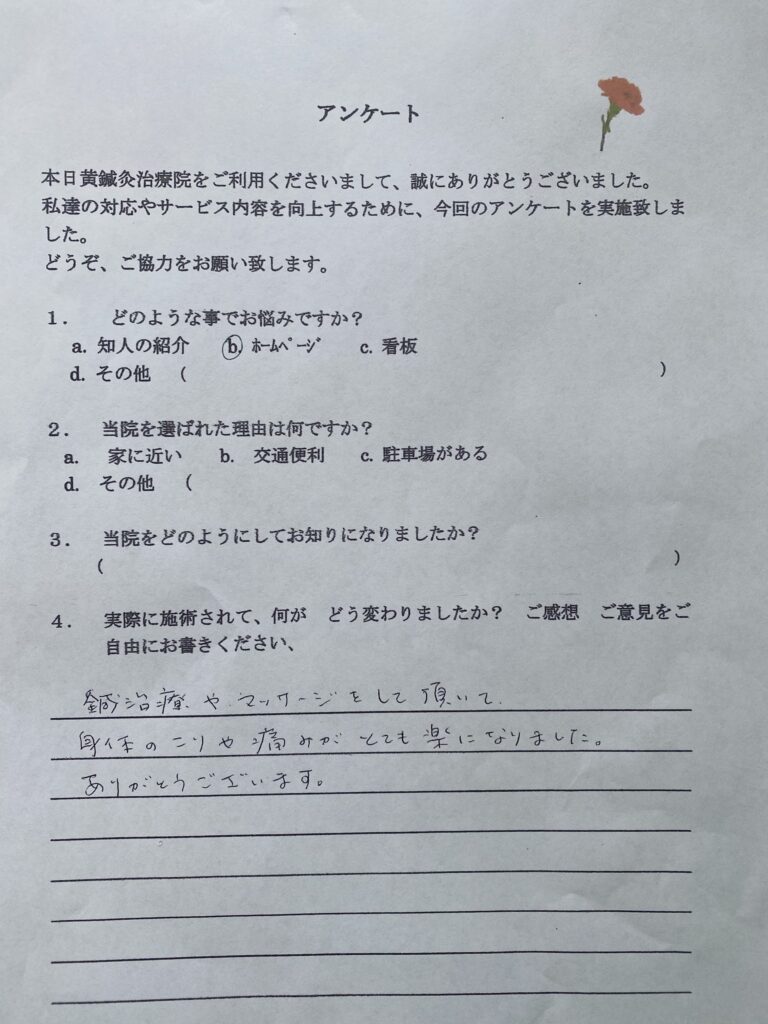 アンケート
本日黄鍼灸治療院をご利用くださいまして、誠にありがとうございました。
私達の対応やサービス内容を向上するために、今回のアンケートを実施致しま
した。
どうぞ、ご協力をお願い致します。
１． どのような事でお悩みですか？
a. 知人の紹介 b. ﾎｰﾑﾍﾟｰｼﾞ c. 看板
d. その他 （ ）
２． 当院を選ばれた理由は何ですか？
a. 家に近い b. 交通便利 c. 駐車場がある
d. その他 （
３． 当院をどのようにしてお知りになりましたか？
（ ）
４． 実際に施術されて、何が どう変わりましたか？ ご感想 ご意見をご
自由にお書きください、
鍼治療や、マッサージをして頂いて、
身体のこりや痛みがとても楽になりました。
ありがとうございます。